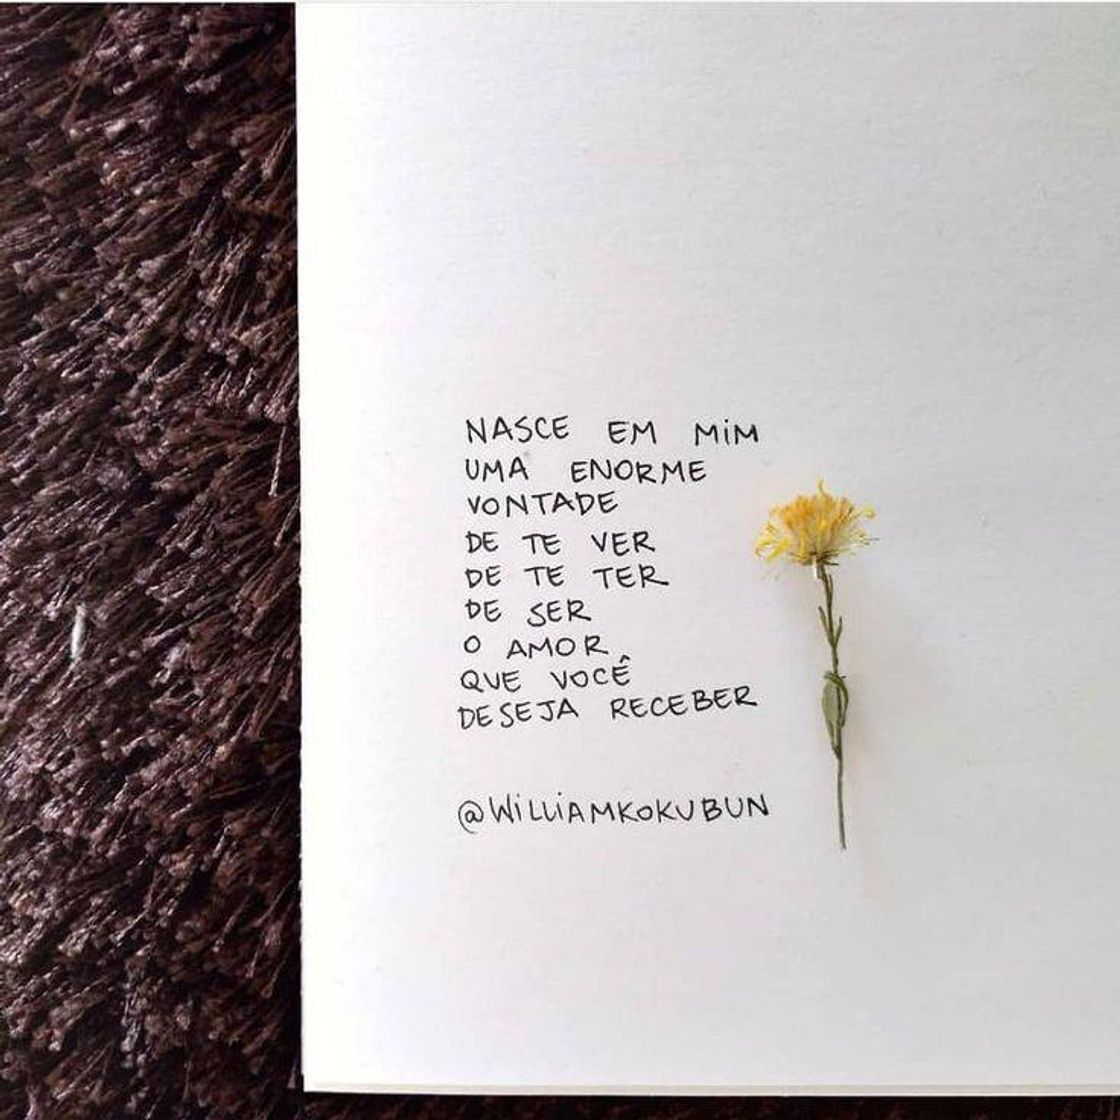 NASCE EM MIM
UMA ENORME
VONTADE
DE TE VER
DE TE TER
DE SER
O AMOR
QUE VOCÊ
DESEJA RECEBER
@WILLIAMKOKUBUN